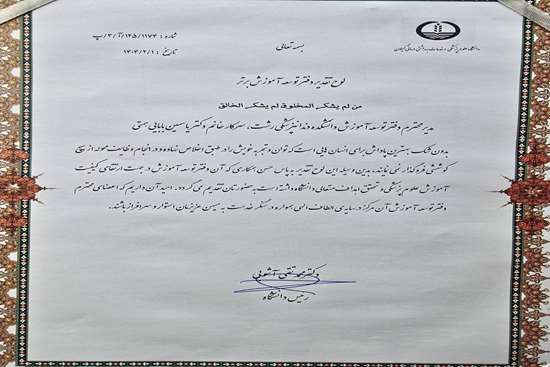 بسمه تعالی
شماره : ۱۱۷۴/۱۴۵/آ/۳/پ
تاریخ : ۱۴۰۳/۲/۱
دانشگاه علوم پزشکی و خدمات بهداشتی درمانی گیلان
لوح تقدیر دفتر توسعه آموزش برتر
من لم یشکر المخلوق لم یشکر الخالق
مدیر محترم دفتر توسعه آموزش دانشکده دندانپزشکی رشت، سرکار خانم دکتر یاسمین بابایی همتی
بدون شک بهترین پاداش برای انسان هایی است که توان و تجربه خویش را در طبق اخلاص نهاده و در انجام وظایف محوله از هیچ
کوشش فروگذار نمی نمایند. بدین وسیله این لوح تقدیر به پاس حسن همکاری که آن دفتر توسعه آموزش در جهت ارتقای کیفیت
آموزش علوم پزشکی و تحقق اهداف متعالی دانشگاه داشته است به حضورتان تقدیم می گردد. امید آن داریم که اعضای محترم
دفتر توسعه آموزش آن مرکز در سایه ی الطاف الهی همواره در سنگر خدمت به میهن عزیزمان استوار و سرافراز باشند.
دکتر محمدتقی آشوبی
رئیس دانشگاه